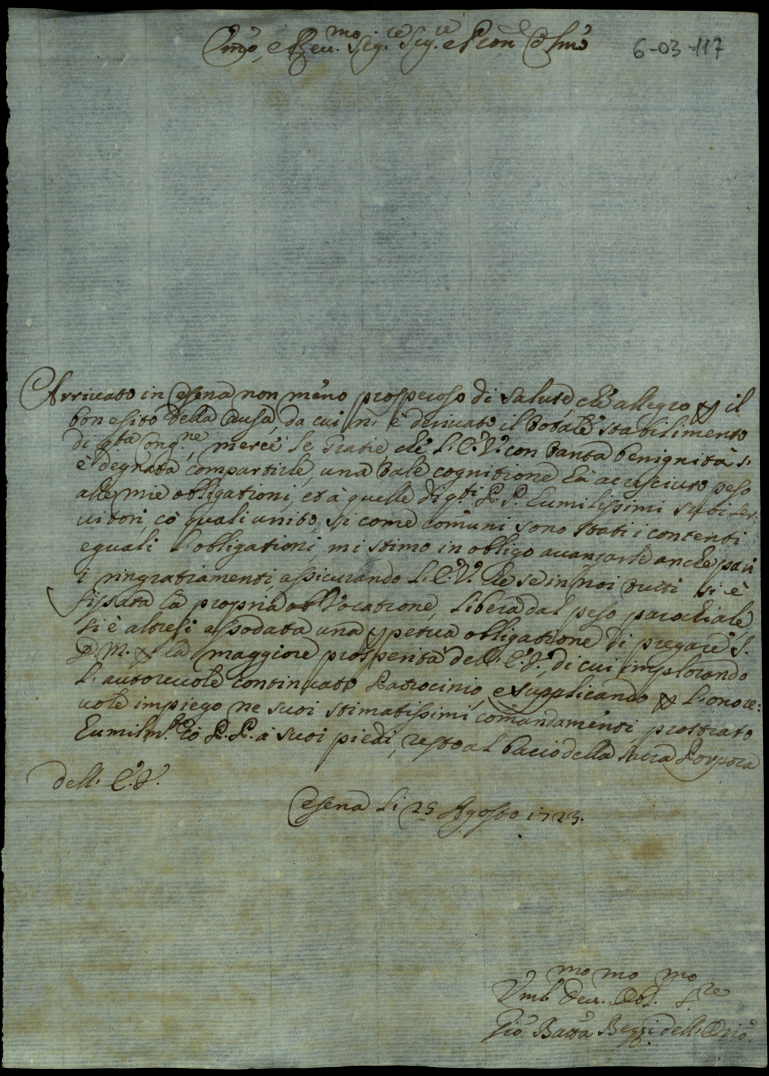 Emo, e Reu.mo Sig.re Sig.re e Pron Colmo
6-03-117
Arriuato in Cesena non meno prosperoso di salute, che allegro p il
bon esito della Causa, da cui ne è deriuato il totale stabilimento
di qta Mgne, mercè le gratie che l'E.V. con tanta benignità s'
è degnata compartirle, una tale cognitione hà accresciuto peso
alle mie obligationi, et à quelle di qti P.P. humilissimi suoi ser
uitori, cò quali unito, si come comuni sono stati i contenti
eguali l'obligationi, mi stimo in obligo auanzarle anche pari
i ringratiamenti, assicurando l'E.V. che se in noi tutti si è
fissata la propria Vocatione, libera dal peso parochiale
si è altresi assodata una ppetua obligatione di pregare S.
D.M. p la maggiore prosperità dell'E.V., di cui implorando
l'autoreuole continuato Patrocinio, e supplicando p l'onore:
uole impiego ne suoi stimatissimi comandamenti, prostrato
humilm.te cò P.P. à suoi piedi, resto al baccio della sacra Porpora
dell'E.V.
Cesena li 25 Agosto 1723.
Vmo Deu.mo Obl.mo S.re
Gio Batta Bezzi dell'Orio